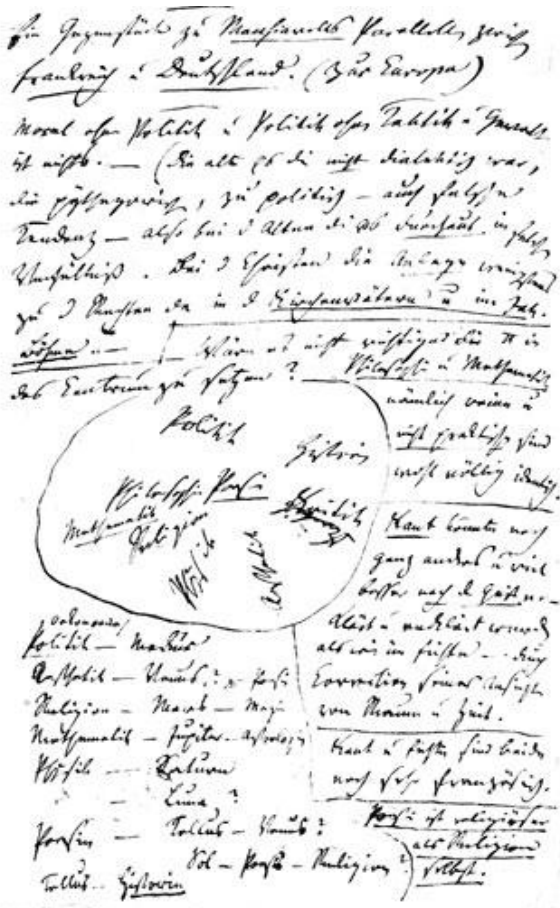 Ein Gegenstück zu Macchiavells Parallele zwisch
Frankreich u Deutschland. (Zur Europa)
Moral ohne Politik u Politik ohne Taktik u
ist nichts. — (die alte die nicht dialektisch war,
die pythagorisch, zu politisch — auch falsche
Tendenz — also bei d Alten die durchaus in falsch
Verhältniß. Bei d Christen die Anlage wenigstens
zu d Rechten da in d Kirchenvätern u im
Böhme. — Wäre es nicht richtiger die π in
das Centrum zu setzen?
Philosophie u Mathematik
nämlich reine u
nicht praktische sind
wohl völlig identisch
Politik
Historie
Philosophie Poesie
Kritik
Mathematik
Religion
Physik
Aesthetik
Kant könnte noch
ganz anders u viel
besser nach d Geist
erklärt u verklärt werden
als wie im Fichte — durch
Correction seiner Ansicht
von Raum u Zeit.
Kant u Fichte sind beide
noch sehr französisch.
Poesie ist religiöser
als Religion
selbst.
Oekonomie
Politik — Merkur
Aesthetik — Venus? — Poesie
Religion — Mars — Magie
Mathematik — Jupiter — Astrologie
Physik — Saturn
— Luna?
Poesie — Tellus — Venus?
Sol — Poesie — Religion?
Tellus — Historie